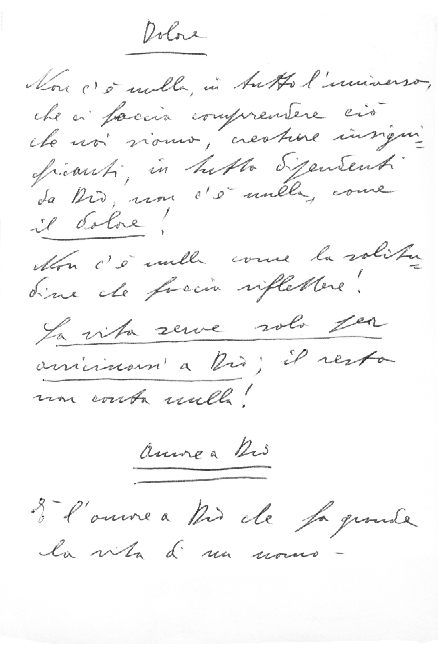 Dolore
Non c'è nulla, in tutto l'universo,
che ci faccia comprendere ciò
che noi siamo, creature insigni-
ficanti, in tutto dipendenti
da Dio, non c'è nulla, come
il dolore!
Non c'è nulla come la solitu-
dine che faccia riflettere!
La vita serve solo per
avvicinarsi a Dio; il resto
non conta nulla!
Amore a Dio
È l'amore a Dio che fa grande
la vita di un uomo -